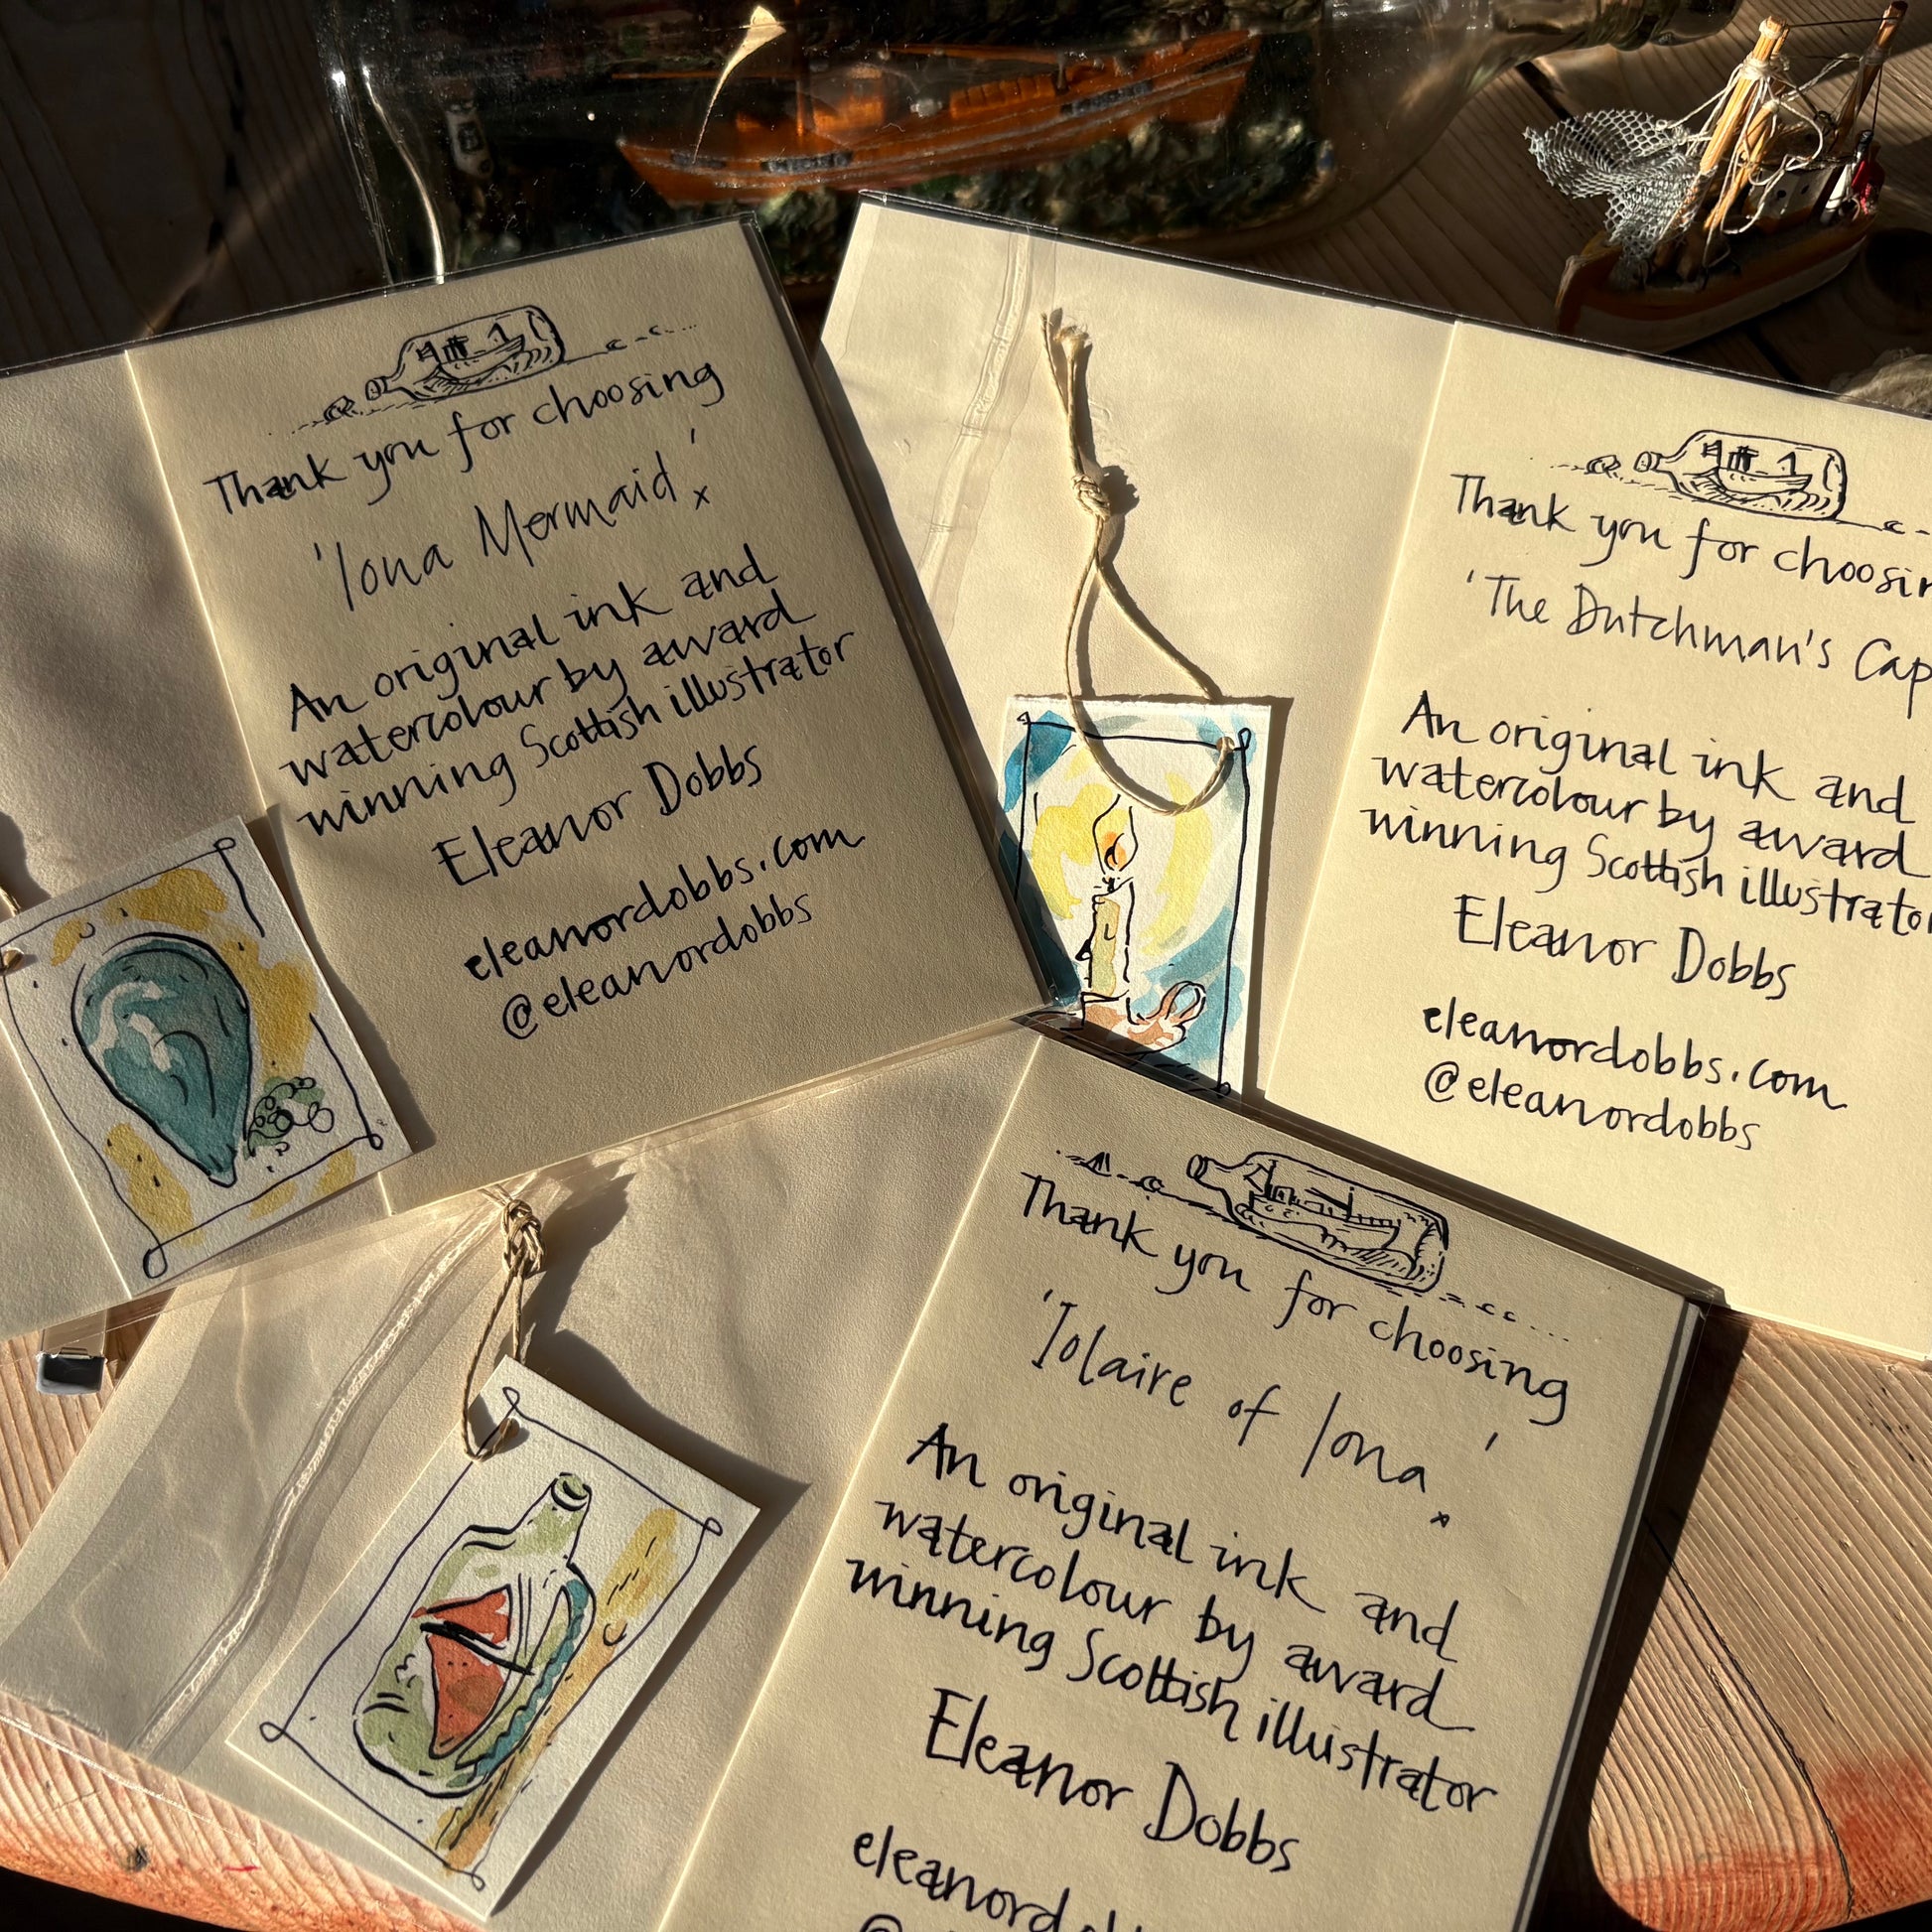 Thank you for choosing
'Iona Mermaid' x
An original ink and
watercolour by award
winning Scottish illustrator
Eleanor Dobbs
eleanordobbs.com
@eleanordobbs
Thank you for
'The Dutchman's
An original ink and
watercolour by award
winning Scottish
Eleanor Dobbs
eleanordobbs.com
@eleanordobbs
Thank you for choosing
'Iolaire of Iona' x
An original ink and
watercolour by award
winning Scottish illustrator
Eleanor Dobbs